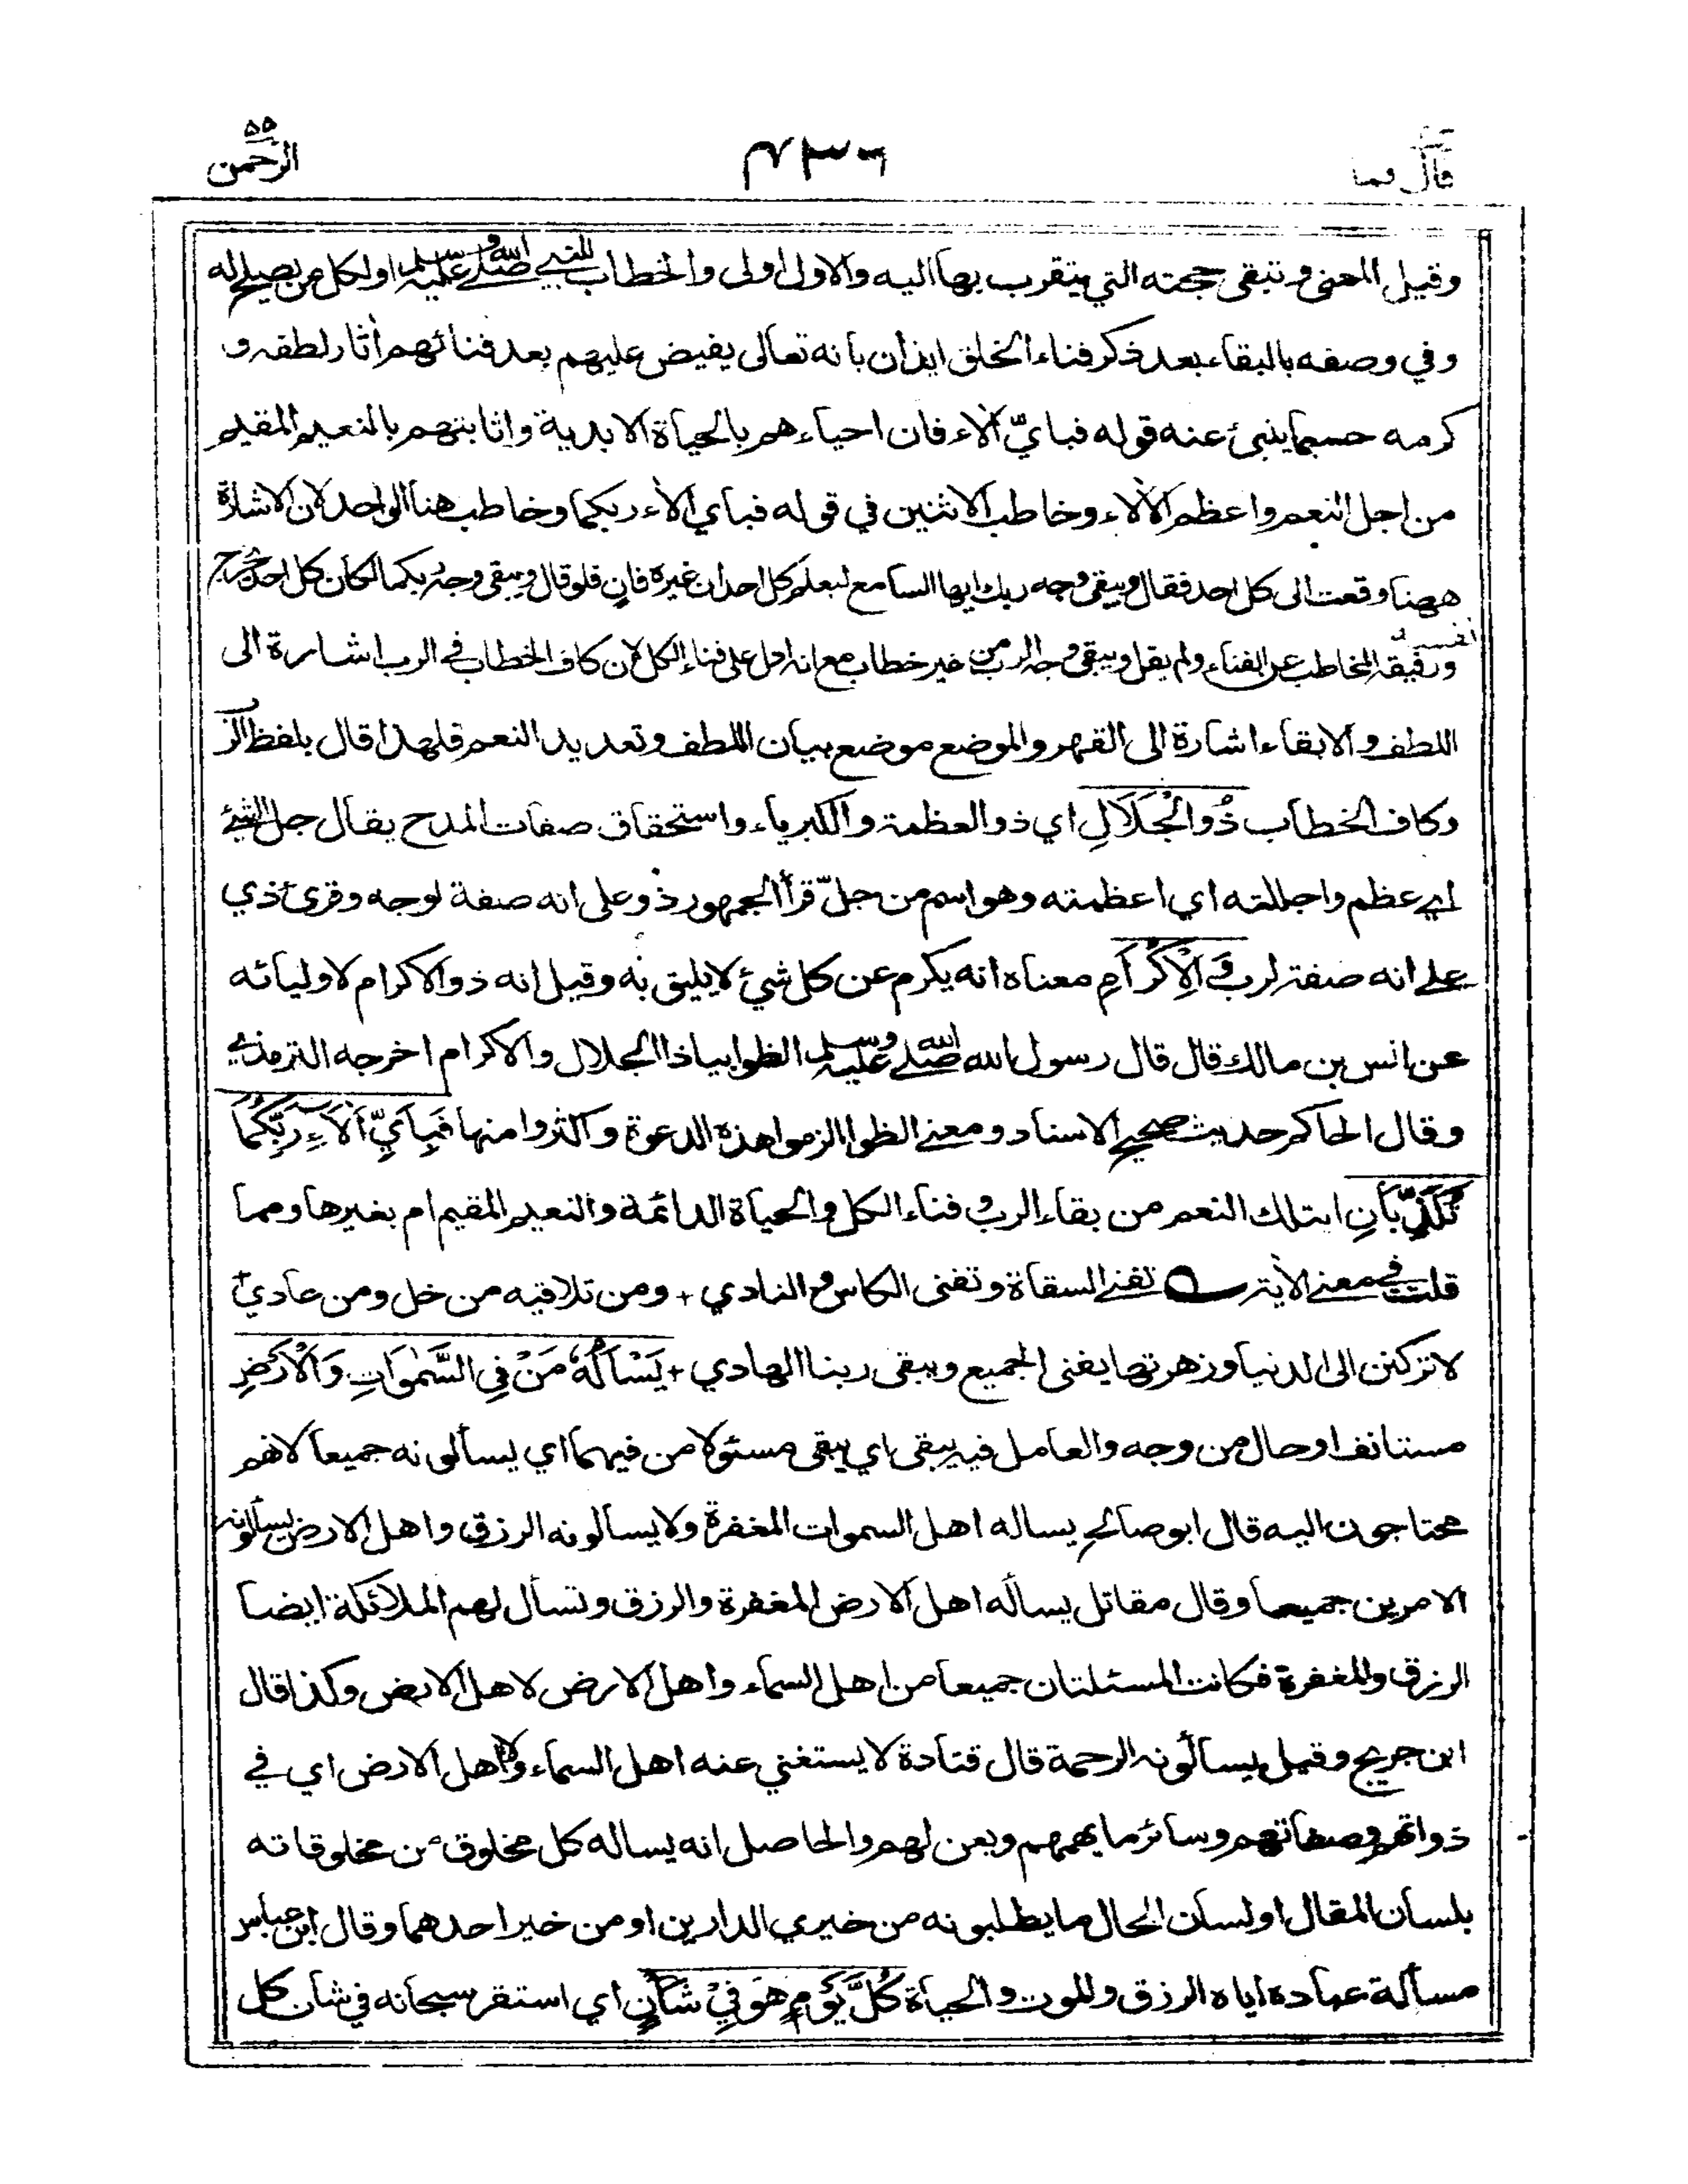 قال فما
٤٣٦
٥٥
الرحمن
وقيل المعنى وتبقى حجته التي يتقرب بها اليه والاول اولى والخطاب للنبي صلى الله عليه وسلم اولكل من يصلح له
وفي وصفه بالبقاء بعد ذكر فناء الخلق ايذان بانه تعالى يفيض عليهم بعد فنائهم أثار لطفه و
كرمه حسبما ينبئ عنه قوله فبايّ ألاء فان احياءهم بالحياة الابدية واثابتهم بالنعيم المقيم
من اجل النعم واعظم الألاء وخاطب الاثنين في قوله فباي ألاء ربكما وخاطب هنا الواحد لان الاشارة
ههنا وقعت الى كل احد فقال ويبقى وجه ربك ايها السامع ليعلم كل احد ان غيره فانٍ فلو قال ويبقى وجه ربكما لكان كل احد يخرج نفسه
ورفيقه المخاطب عن الفناء ولم يقل ويبقى وجه الرب من غير خطاب مع انه ادل على فناء الكل لان كاف الخطاب في الرب اشارة الى
اللطف والابقاء اشارة الى القهر والموضع موضع بيان اللطف وتعديد النعم فلهذا قال بلفظ الرب
وكاف الخطاب ذُو الْجَلَالِ اي ذو العظمة والكبرياء واستحقاق صفات المدح يقال جل الشئ
اي عظم واجللته اي اعظمته وهو اسم من جلّ قرأ الجمهور ذو على انه صفة لوجه وقرئ ذي
على انه صفة لرب وَ الْاِكْرَامِ معناه انه يكرم عن كل شئ لا يليق به وقيل انه ذو الاكرام لاوليائه
عن انس بن مالك قال قال رسول الله صلى الله عليه وسلم الظوا بياذا الجلال والاكرام اخرجه الترمذي
وقال الحاكم حديث صحيح الاسناد ومعنى الظوا الزموا هذه الدعوة واكثروا منها فَبِاَيِّ اٰلَاءِ رَبِّكُمَا
تُكَذِّبَانِ ابتلك النعم من بقاء الرب وفناء الكل والحياة الدائمة والنعيم المقيم ام بغيرها ومما
قلت في معنى الأية تفنى السقاة وتفنى الكاس والنادي + ومن تلاقيه من خل ومن عادي
لا تركنن الى الدنيا وزهرتها يفنى الجميع ويبقى ربنا الهادي + يَسْاَلُهٗ مَنْ فِي السَّمٰوَاتِ وَالْاَرْضِ
مستانف او حال من وجه والعامل فيه يبقى اي يبقى مسئولا من فيهما اي يسألونه جميعا لانهم
محتاجون اليه قال ابو صالح يساله اهل السموات المغفرة ولا يسالونه الرزق واهل الارض يسألونه
الامرين جميعا وقال مقاتل يسأله اهل الارض المغفرة والرزق وتسأل لهم الملائكة ايضا
الرزق والمغفرة فكانت المسئلتان جميعا من اهل السماء واهل الارض لاهل الارض وكذا قال
ابن جريج وقيل يسألونه الرحمة قال قتادة لا يستغني عنه اهل السماء ولا اهل الارض اي في
ذواتهم وصفاتهم وسائر ما يهمهم ويعن لهم والحاصل انه يساله كل مخلوق من مخلوقاته
بلسان المقال او لسان الحال ما يطلبونه من خيري الدارين او من خير احدهما وقال ابن عباس
مسألة عباده اياه الرزق والموت والحياة كُلَّ يَوْمٍ هُوَ فِيْ شَاْنٍ اي استقر سبحانه في شان كل